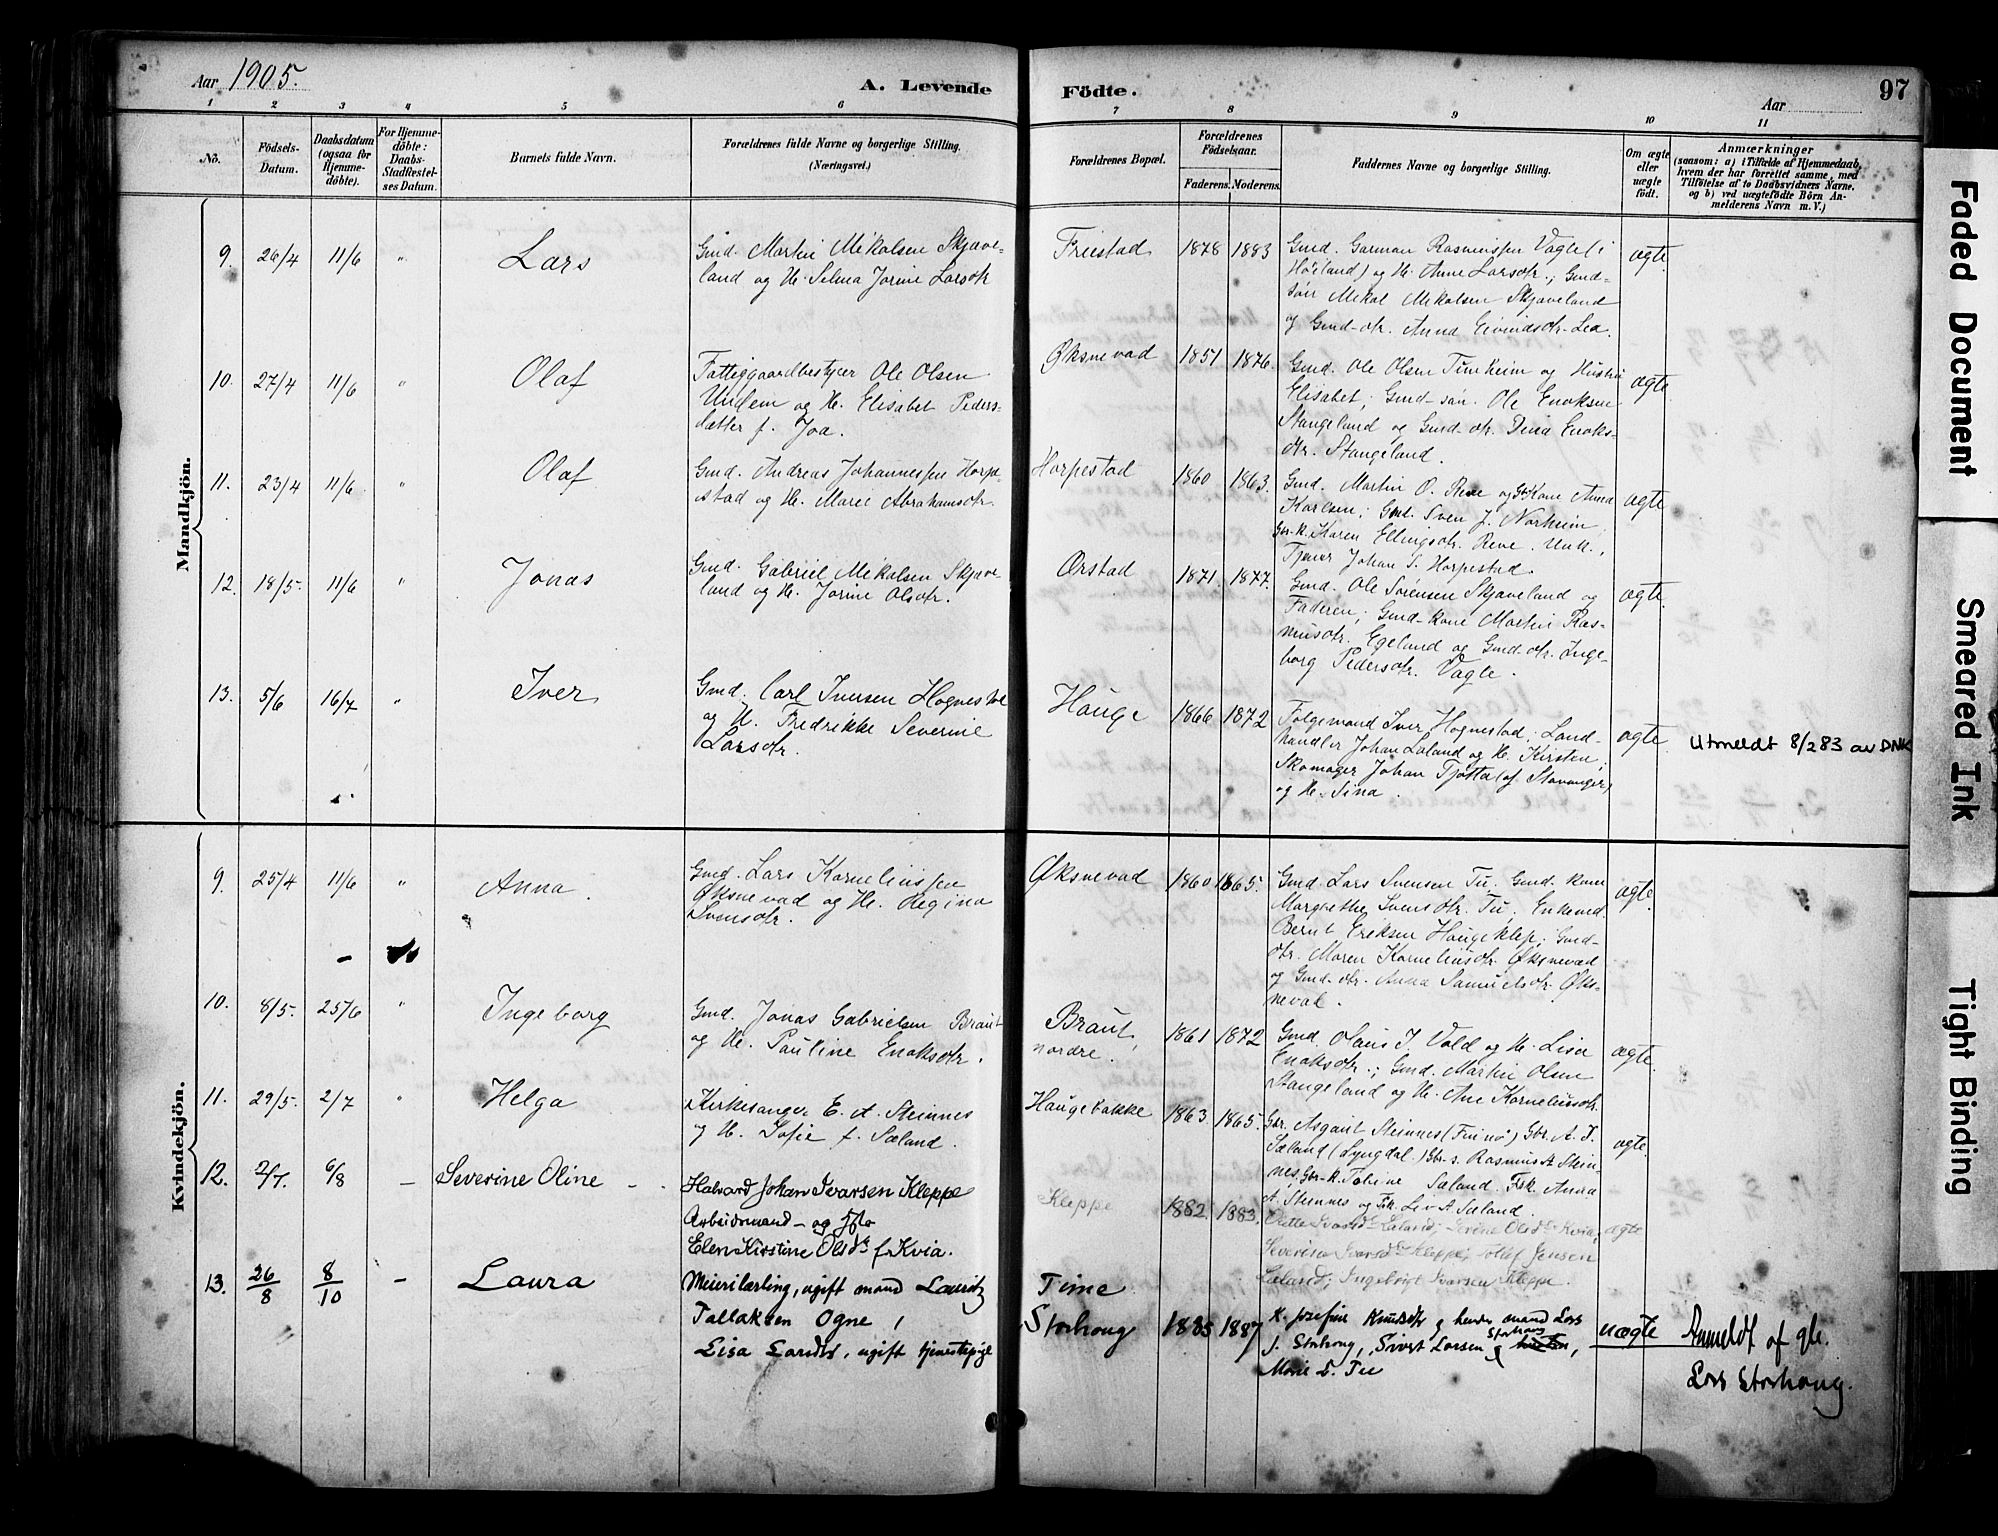 Aar 1905.
A. Levende
Födte.
Aar
97
1 2 3 4 5 6 7 8 9 10 11
No.
Födsels-
Datum.
Daabsdatum
(ogsaa for
Hjemme-
döbte).
For Hjemme-
döbte:
Daabs-
Stadfæstel-
ses Datum.
Barnets fulde Navn.
Forældrenes fulde Navne og borgerlige Stilling.
(Næringsvei.)
Forældrenes Bopæl.
Forældrenes
Födselsaar.
Faderens. Moderens.
Faddernes Navne og borgerlige Stilling.
Om ægte
eller
uægte
födt.
Anmærkninger
(saasom: a) i Tilfælde af Hjemmedaab,
hvem der har forrettet samme, med
Tilföielse af to Daabsvidners Navne.
og b) ved uægtefödte Börn An-
melderens Navn m. V.)
Mandkjön.
9. 26/4 11/6 " Lars
Gmd. Martin Mikalsen Skjæve-
land og H. Selma Jorine Larsdtr
Friestad 1878 1883
Gmd. Garman Rasmussen Vagle i
Høiland) og H. Anne Larsdtr.; Gmd-
søn Mikal Mikalsen Skjæveland
og Gmd-dtr. Anna Eivindsdtr. Lea.
ægte
10. 27/4 11/6 " Olaf
Fattiggaardbestyrer Ole Olsen
Undem og H. Elisabet Peders-
datter f. Joa.
Øksnevad 1851 1876.
Gmd. Ole Olsen Tunheim og Hustru
Elisabet; Gmd-søn. Ole Enoksen
Stangeland og Gmd-dtr. Dina Enoks-
dtr. Stangeland.
ægte
11. 23/4 11/6 " Olaf
Gmd. Andreas Johannessen Horpe-
stad og H. Marie Abrahamsdtr.
Horpestad 1860 1863.
Gmd. Martin O. Reve og Gbr Kone Anna
Karlsen; Gmd. Sven J. Norheim,
Gbr. K. Karen Ellingsdtr. Reve. Unk.,
Tjener Johan S. Horpestad.
ægte
12. 18/5. 11/6 " Jonas
Gmd. Gabriel Mikalsen Skjæve-
land og H. Jorine Olsdtr.
Orstad 1871. 1877.
Gmd. Ole Sørensen Skjæveland og
Faderen; Gmd-kone Martin Ras-
musdtr. Egeland og Gmd-dtr. Inge-
borg Pedersdtr. Vagle.
ægte.
13. 5/6 16/7 " Iver
Gmd. Carl Iversen Hognestad
og H. Fredrikke Severine
Larsdtr.
Hauge 1866 1872
Følgemand Iver Hognestad; Land-
handler Johan Laland og H. Kirsten,
Skomager Johan Tjøtta (af Stavanger)
og H. Sina.
ægte.
Utmeldt 8/2 83 av DNK
Kvindekjön.
9. 25/4 11/6 " Anna.
Gmd. Lars Korneliussen
Øksnevad og H. Regina
Svensdtr.
Øksnevad 1860 1865.
Gmd. Lars Svensen Tu. Gmd. kone
Margrethe Svensdtr. Tu. Enkemd.
Bernt Eriksen Haugeklep; Gmd-
dtr. Maren Korneliusdtr. Øksnevad
og Gmd-dtr. Anna Samuelsdtr. Øks-
nevad.
ægte.
10. 8/5. 25/6 " Ingeborg
Gmd. Jonas Gabrielsen Braut
og H. Pauline Enoksdtr.
Braut,
nordre. 1861 1872
Gmd. Olaus T. Vold og H. Lisa
Enoksdtr.; Gmd. Martin Olsen
Stangeland og H. Ane Korneliusdtr.
ægte
11. 29/5. 2/7 " Helga
Kirkesanger E. A. Steinnes
og H. Sofie f. Sæland.
Haugebakke 1863 1865.
Gbr. Asgaut Steinnes (Finnø) Gbr. A. T.
Sæland (Lyngdal) Gbr-s. Rasmus A. Stein-
nes Gbr-k. Tobine Sæland. Frk. Anna
A. Steinnes og Frk. Liv A. Sæland.
ægte.
12. 2/7. 6/8 – Severine Oline
Halvard Johan Ivarsen Kleppe
Arbeidsmand – og Hstr
Elen Kirstine Olsdtr f. Kvia.
Kleppe 1882. 1883.
Sæland; Ingebrigt Ivarsen Kleppe.
ægte
13. 26/8 8/10 – Laura
Meierilærling, ugift mand Lauritz
Tallaksen Ogne,
Lisa Larsdtr, ugift tjenestepige
Time
Storhaug 1885 1887
K. Josefine Knudsdtr og hendes mand Lars
J. Storhaug, Sivert Larsen Storhaug og
Marie L. Tu
uægte
Anmeldt af gbr.
Lars Storhaug.
Faded Document
Smeared Ink
Tight Binding